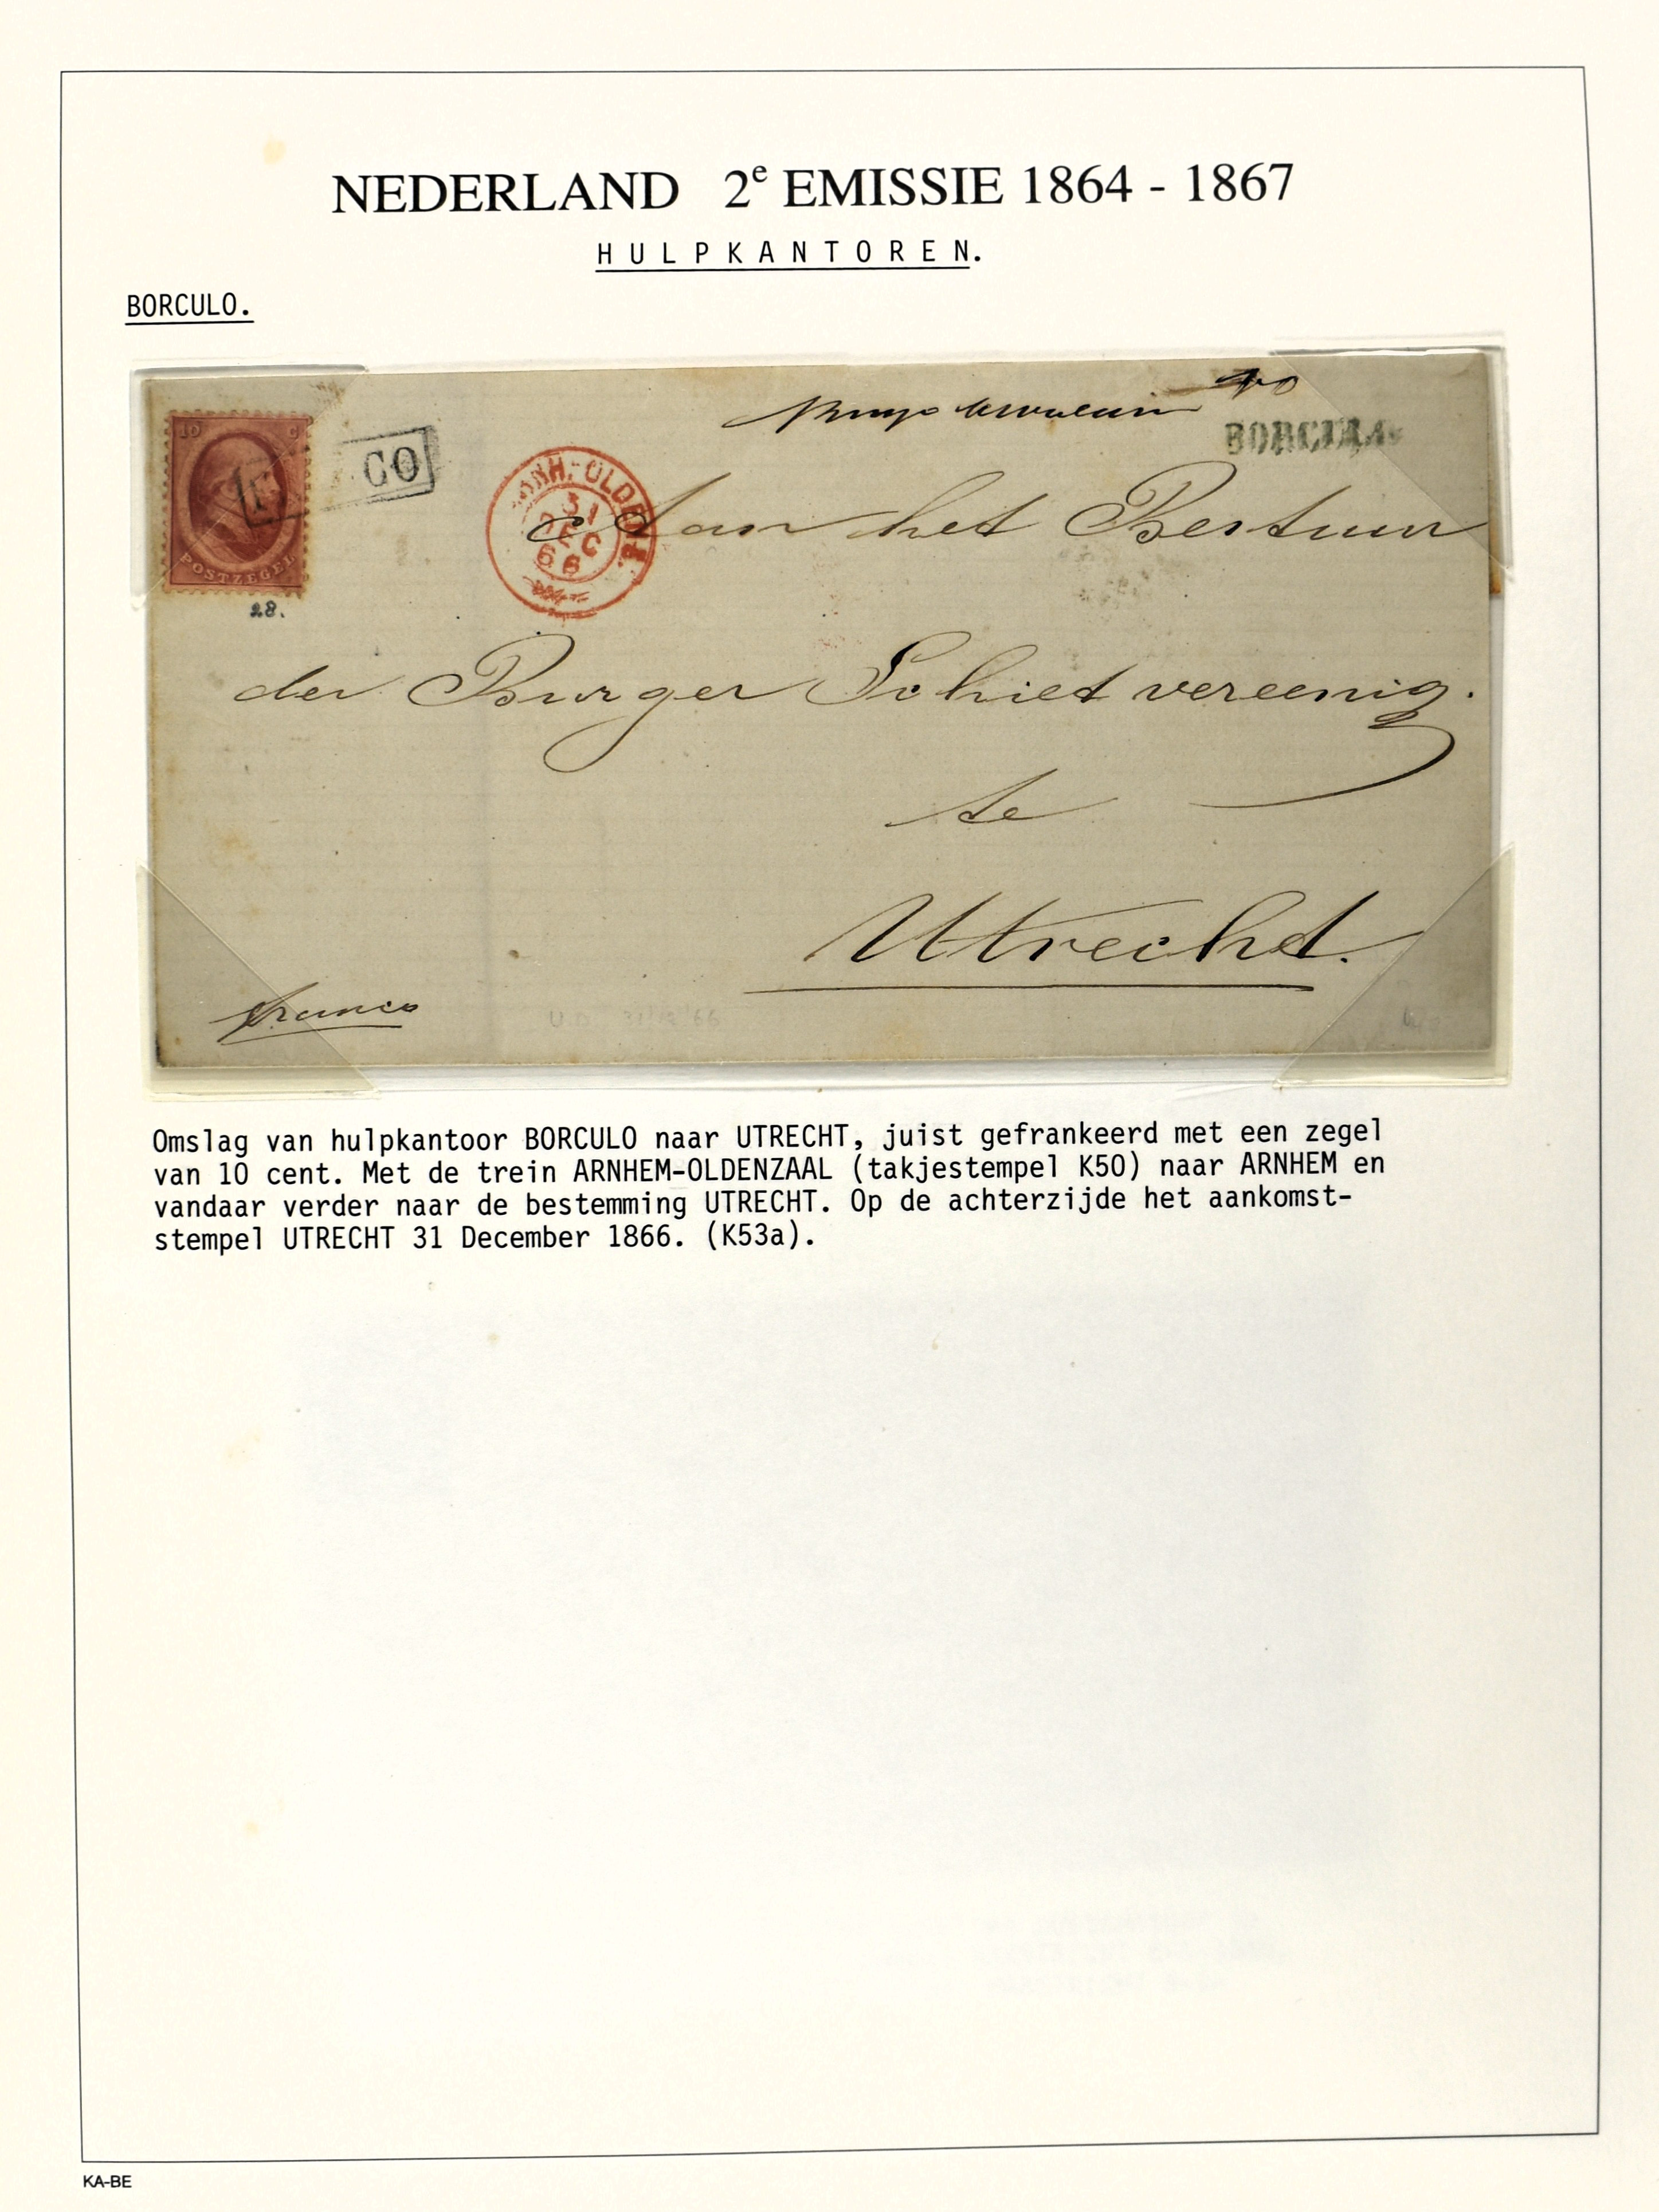 NEDERLAND 2e EMISSIE 1864 - 1867
HULPKANTOREN.
BORCULO.
10 C
POSTZEGEL
CO
28.
ARNH.-OLDENZ.
31
DEC
66
BORCULO
Aan het Bestuur
der Burger Schietvereenig.
te
Utrecht.
franco
Omslag van hulpkantoor BORCULO naar UTRECHT, juist gefrankeerd met een zegel
van 10 cent. Met de trein ARNHEM-OLDENZAAL (takjestempel K50) naar ARNHEM en
vandaar verder naar de bestemming UTRECHT. Op de achterzijde het aankomst-
stempel UTRECHT 31 December 1866. (K53a).
KA-BE